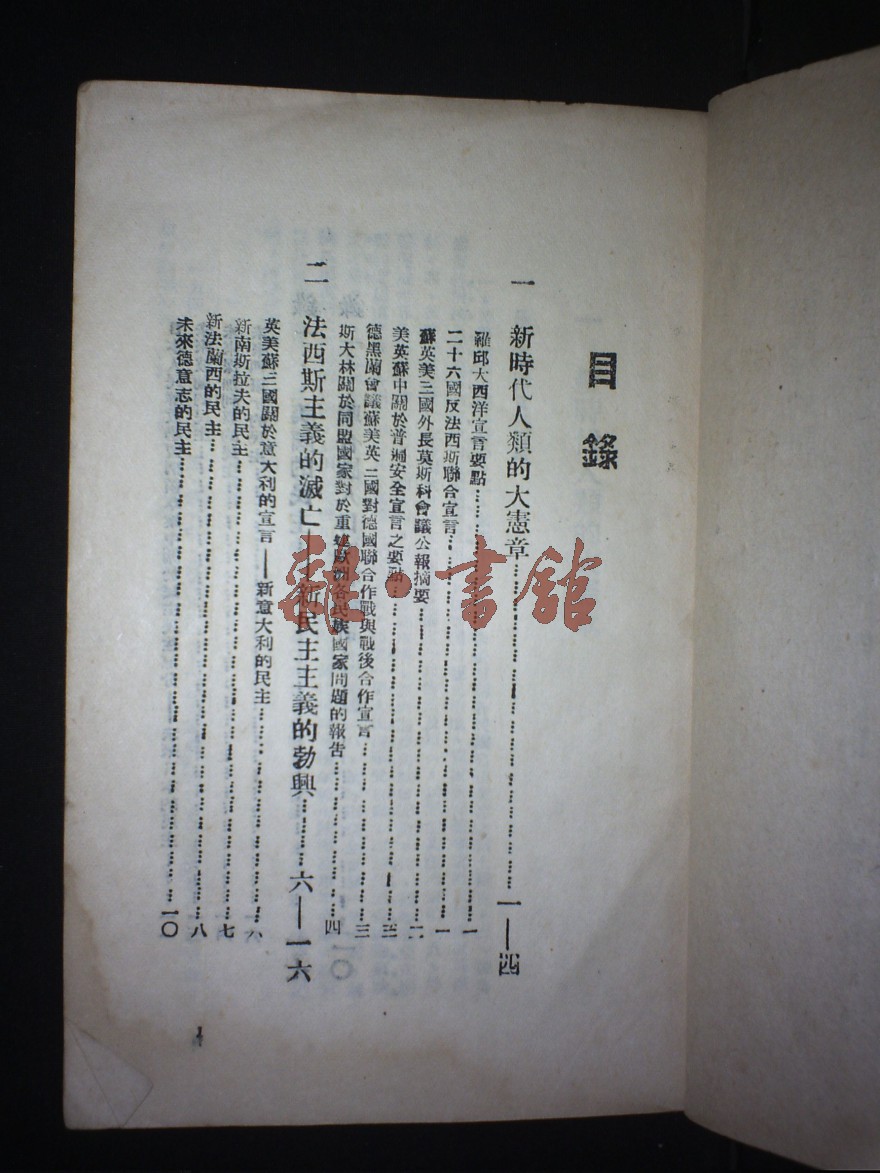 目錄
一 新時代人類的大憲章……一—四
羅邱大西洋宣言要點……一
二十六國反法西斯聯合宣言……一
蘇英美三國外長莫斯科會議公報摘要……二
美英蘇中關於普遍安全宣言之要點……三
德黑蘭會議蘇美英三國對德國聯合作戰與戰後合作宣言……三
斯大林關於同盟國家對於重建歐洲各民族國家問題的報告……四
二 法西斯主義的滅亡——新民主主義的勃興……六—一六
英美蘇三國關於意大利的宣言——新意大利的民主……六
新南斯拉夫的民主……七
新法蘭西的民主……八
未來德意志的民主……一〇
雜·書館